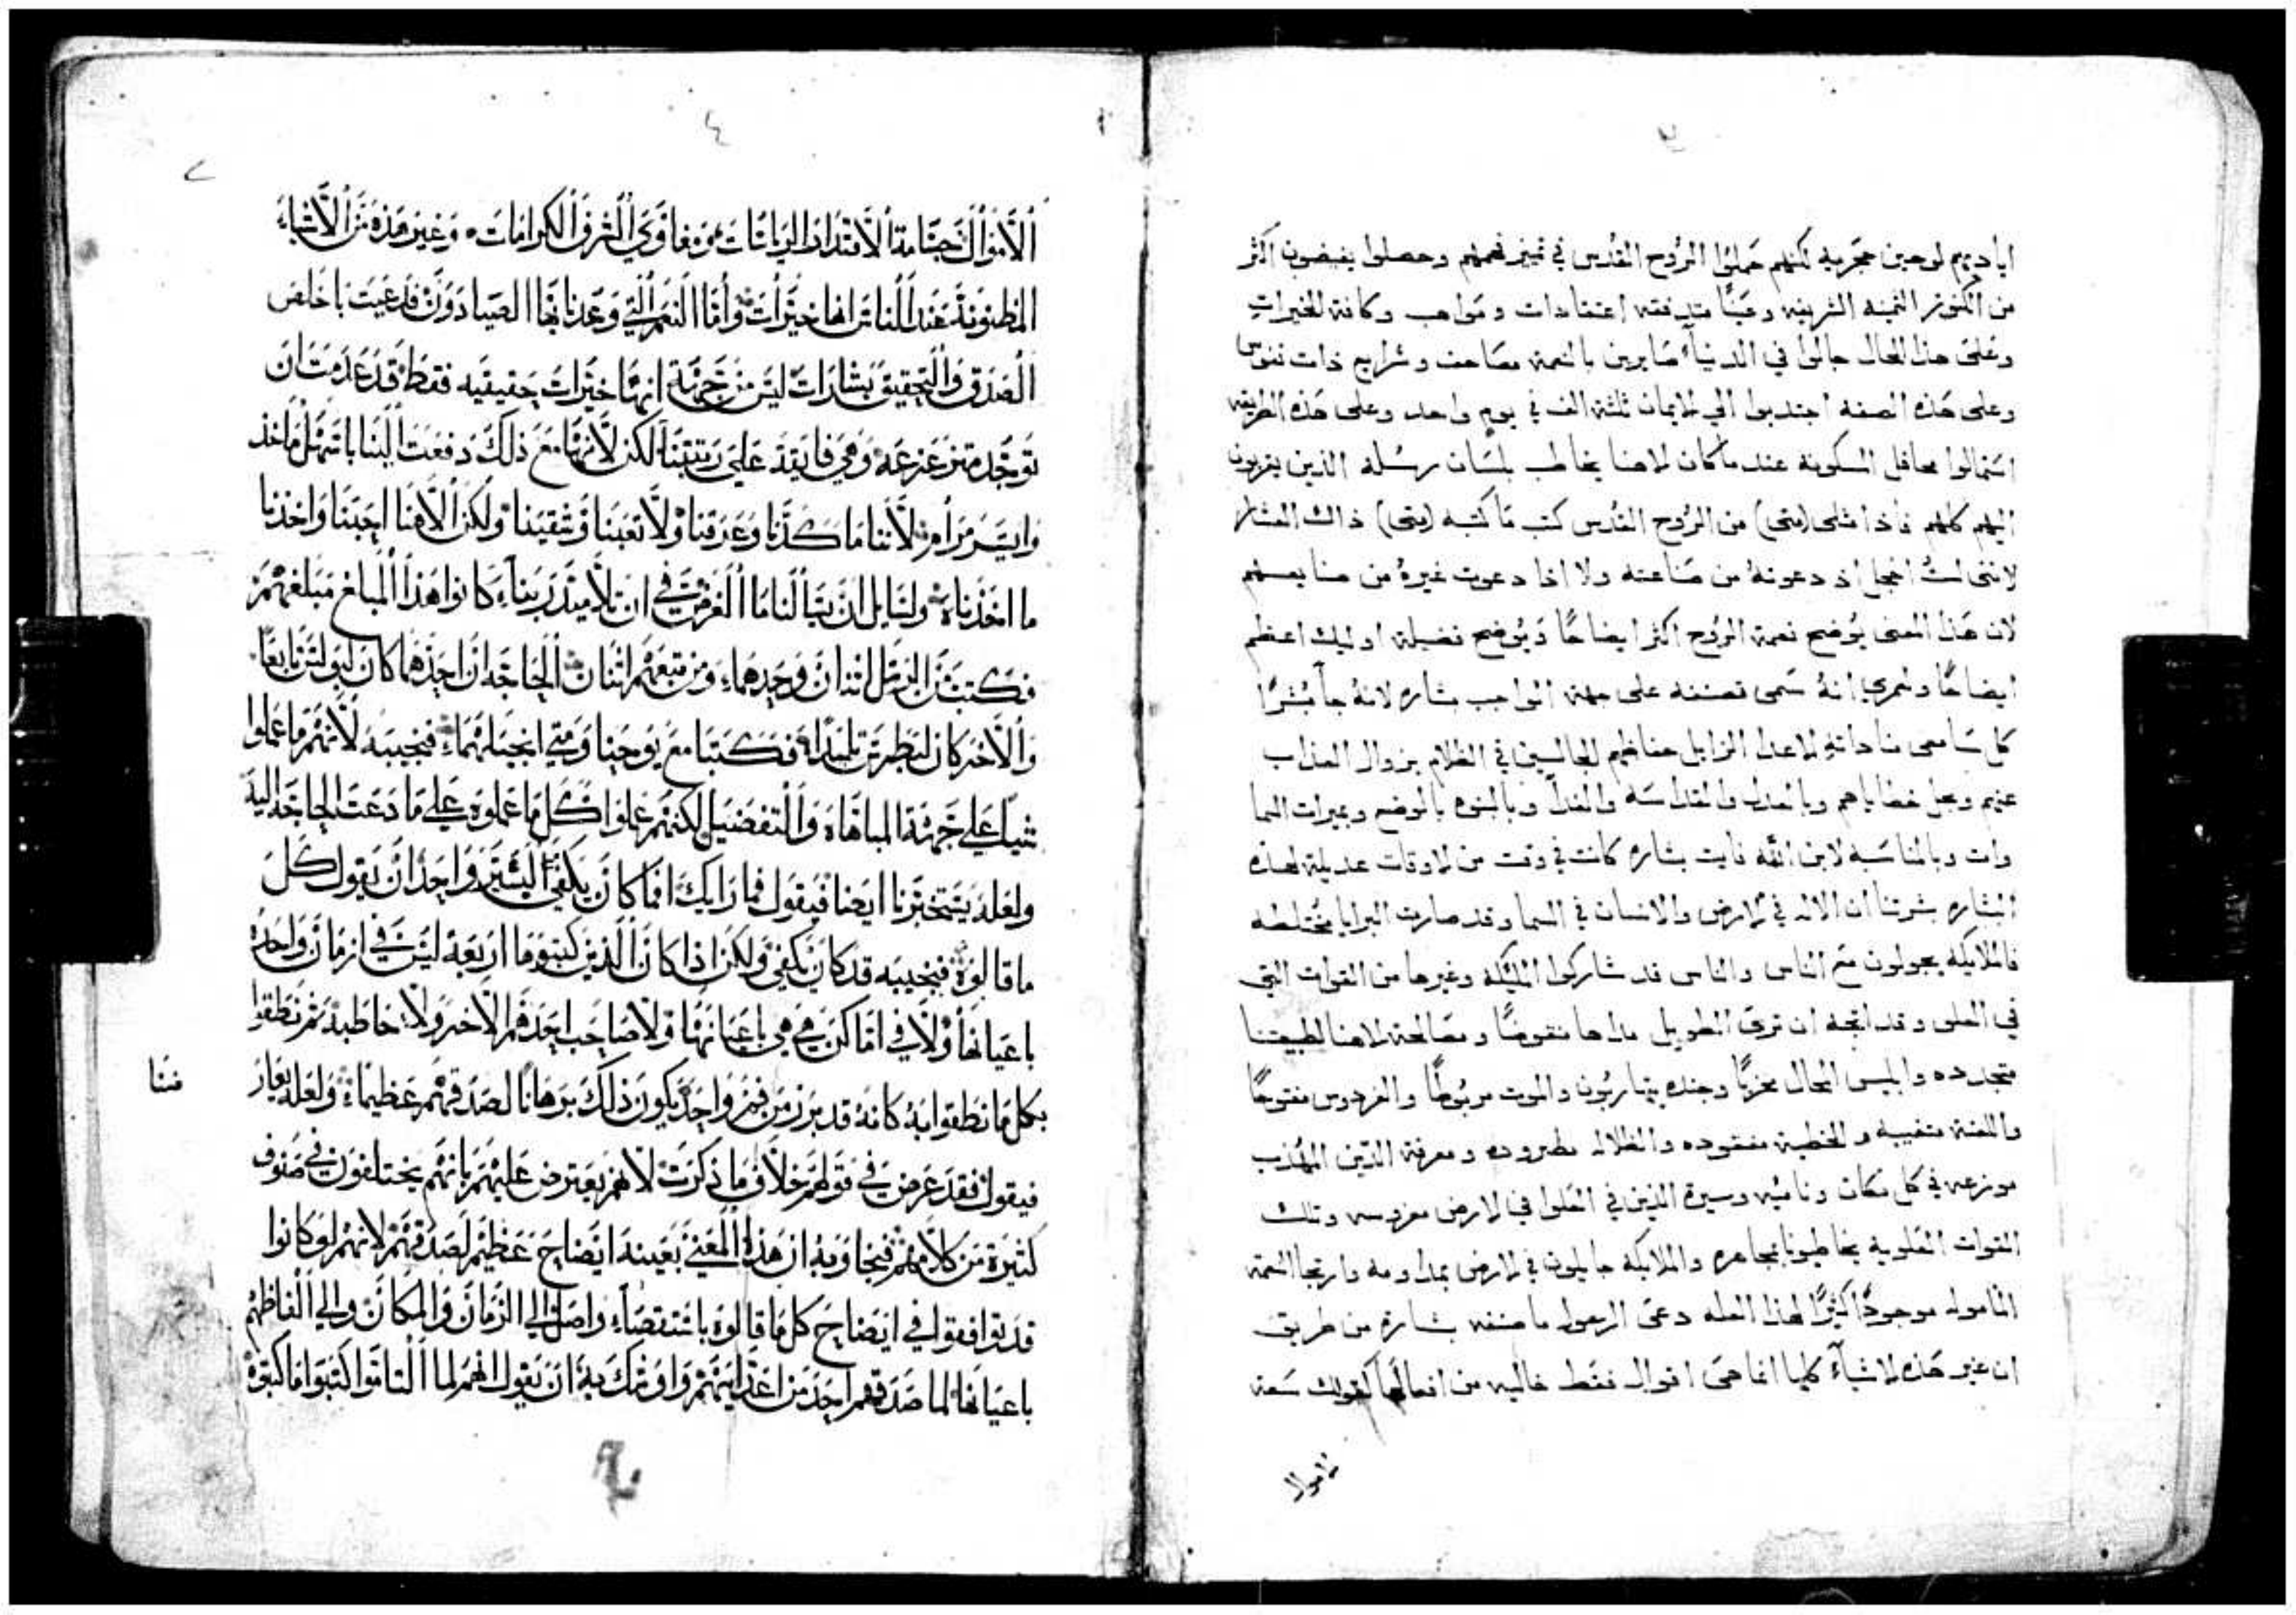 اياديهم لوحين حجريه لكنهم حملوا الروح القدس في تمييز فهمهم وحصلوا يفيضون اكثر
من الكنوز الثمينه الشريفه وعينًا متدفقه اعتقادات ومواهب وكافة الخيرات
وعلى هذا الحال جالوا في الدنيآء صايرين بالنعمة مصاحف وشرايع ذات نفوس
وعلى هذه الصفه اجتذبوا الي الايمان ثلثة الف في يوم واحد وعلى هذه الطريقه
استمالوا محافل المسكونة عند ما كان لاهنا يخاطب بلسان رسله الذين يقربون
اليهم كلهم فاذا متلى (متى) من الروح القدس كتب ما كتبه (متى) ذاك العشار
لانني لست اخجل اذ دعوته من صناعته ولا اذا دعوت غيره من صنايعهم
لان هذا المعنى يوضح نعمة الروح اكثر ايضاحًا ويوضح فضيلة اوليك اعظم
ايضاحًا ولعمري انه سمى تصنيفه على جهة الواجب بشاره لانه جآ مبشرًا
كل سامعى مناداته الاعدا الزايل حفاظهم الجالسين في الظلام بزوال العذاب
عنهم وبحل خطاياهم وبالعدل والقداسه والفدآ وبالبنوه بالوضع وبميرات السما
وات وبالمناسبه لابن الله فايت بشاره كانت في وقت من الاوقات عديلة لهذه
البشاره بشرتنا ان الاله في الارض والانسان في السما وقد صارت البرايا مختلطه
فالملايكه يجولون مع الناس والناس قد شاركوا المليكه وغيرها من القوات التي
في العلى وقد اتجه ان تري الطويل مداها منقوضًا ومصالحة لاهنا لطبيعتنا
متجدده وابليس المحال مخزيًا وجنده يتهاربون والموت مربوطًا والفردوس مفتوحًا
واللعنه متغيبه والخطية مفقوده والظلاله مطروده ومعرفة الدين المهذب
موزعه في كل مكان وناميه وسيرة الذين في العلوا في الارض مغروسه وتلك
القوات العلوية يخاطبونا بمجاهره والملايكه جايلون في الارض بمداومه وارتجا النعمة
المأموله موجودًا كثيرًا لهذه العله دعى الرسول ما صنفه بشارة من طريق
ان غير هذه الاشيآء كلها انما هى اقوال فقط خاليه من افعالها كقولك سعة
الاموال
٤
الاموال جسامة الاقتدار الرياسات ومعاوي الشرف الكرامات وغير هذه من الاشياء
المظنونة عند الناس انها خيرات واما النعم التي وعدنا بها الصيادون فدعيت باخلص
الصدق والتحقيق بشارات ليس من جهة انها خيرات حقيقيه فقط قد عدمت ان
توجد متزعزعه وهي فايقة على رتبتنا لكن لانها مع ذلك دفعت الينا باسهل ماخذ
وايسر مرامر لاننا ما كدنا وعرقنا ولا تعبنا وشقينا ولكن الاهنا احبنا واخذنا
ما اخذناه ولسايل ان يسالنا ما الغرض في ان تلاميذ ربنا كانوا هذا المبلغ مبلغهم
فكتب من الرسل اثنان وحدهما ومن تبعهم اثنان الحاجه ان احدهما كان لبولس تابعًا
والاخر كان لبطرس تلميذا فكتبا مع يوحنا ومتى انجيلهما فنجيبه لانهم ما عملوا
شيا على جهة المباهاه والتفضيل لكنهم عملوا كل ما عملوه على ما دعت الحاجه اليه
ولعله يستخبرنا ايضا فيقول فما رايك اما كان يكفي البشير واحد ان يقول كل
ما قالوه فنجيبه قد كان يكفي ولكن اذا كان الذين كتبوه ما اربعة ليس في ازمان واحدة
باعيانها ولا في اماكن هي هي باعيانها ولا صاحب احدهم الاخر ولا خاطبه ثم نطقوا
بكل ما نطقوا به كانه قد برز من فم واحد يكون ذلك برهانا لصدقهم عظيما ولعله يعارضنا
فيقول فقد عرض في قولهم خلاف ما ذكرت لانهم يعترض عليهم بانهم يختلفون في صنوف
كثيرة من كلامهم فنجاوبه ان هذا المعني بعينه ايضاح عظيم لصدقهم لانهم لو كانوا
قد توافقوا في ايضاح كل ما قالوه باستقصاء واصل الي الزمان والمكان والي الفاظهم
باعيانها لما صدقهم احد من اعدايهم واوشك به ان يقول انهم لما التاموا كتبوا ما كتبوه